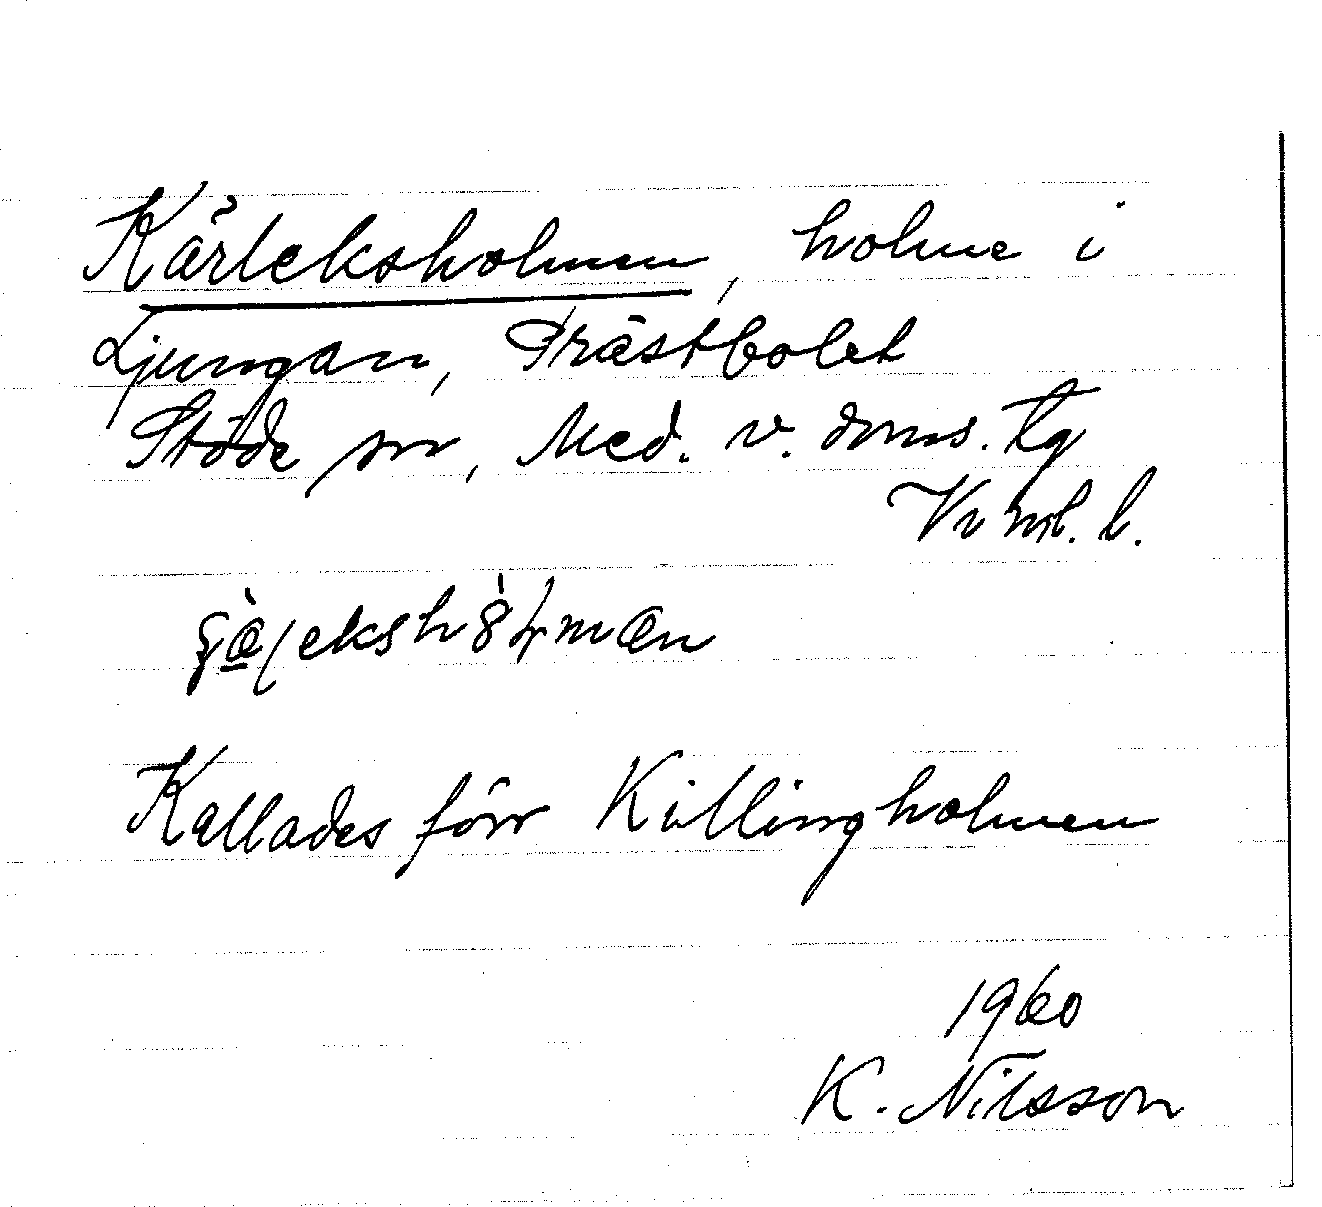 Kärleksholmen, holme i
Ljungan, Prästbolet
Stöde sn, Med. v. doms. tg
Vnml. l.
Kallades förr Killingholmen
1960
K. Nilsson